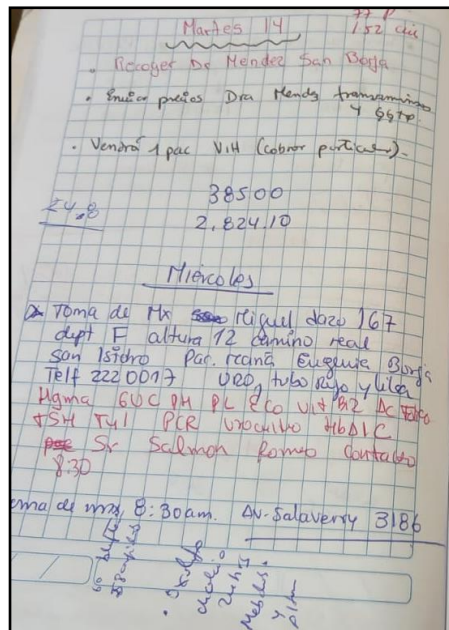 77 P
152 cu
Martes 14
• Recoger Dr Mendez San Borja
• Enviar precios Dra Mendez transaminasa
y ggtp.
• Vendrá 1 pac VIH (cobrar particular).
38500
24,8
2,824.10
Miércoles
Toma de Mx Miguel dazo 167
dept F altura 12 camino real
San Isidro Pac. reaná Eugenia Borja
Telf 2220017 URO, tubo Rojo y lila
Hgma GUC PH PL Eco Vit B12 Ac
TSH T4l PCR urocultivo HbA1C
Sr Salmon Romeo contacto
8:30
de mx, 8:30am. Av. Salaverry 3186
y